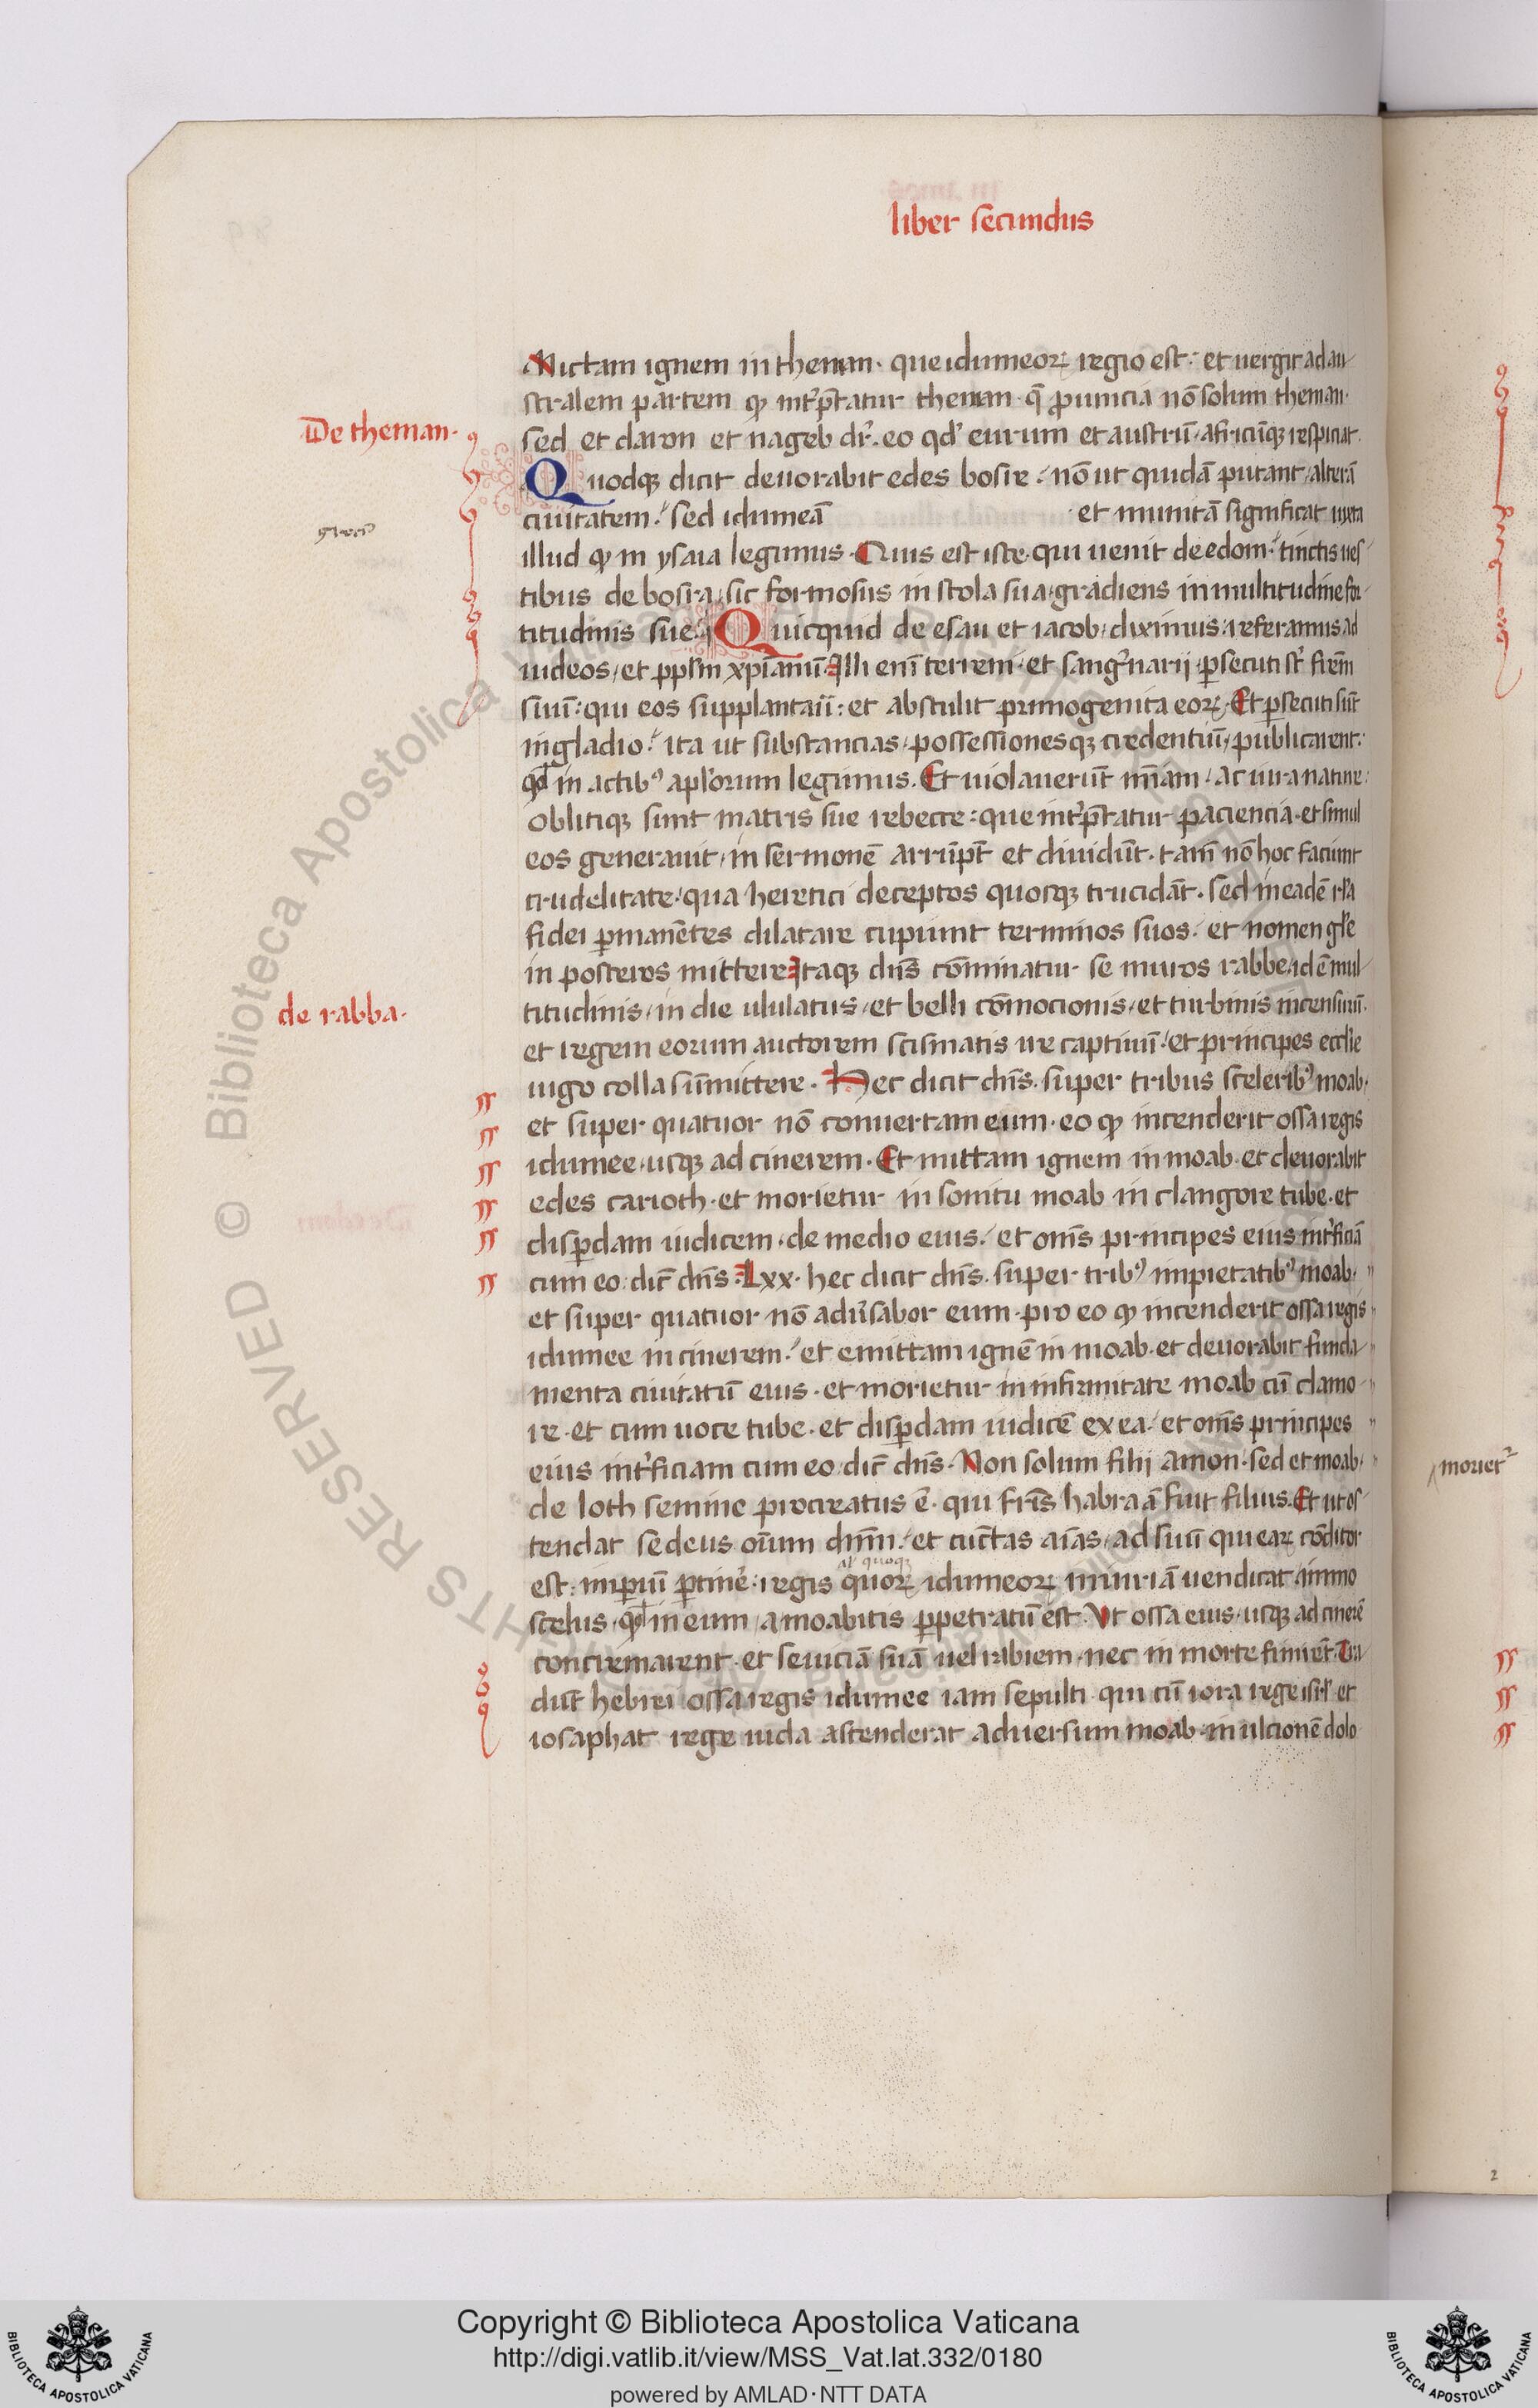 liber secundus
Mictam ignem in theman· que idumeoꝝ regio est: et uergit ad au
stralem partem ꝙ int̾p̄tatur theman· q̄ prouincia nō solum theman·
De theman·
sed et daron et nageb dr̄· eo qd̓ eurum et austrū· africūqꝫ respiciat·
Quodqꝫ dicit deuorabit edes bosre: nō ut quidā putant· alterā
ciuitatem: sed idumeā et munitā significat iuxta
illud ꝙ in ysaia legimus· Quis est iste qui uenit de edom: tinctis ues
tibus de bosra· sic formosus in stola sua· gradiens in multitudine for
titudinis sue· Quicquid de esau et iacob· diximus· referamus ad
iudeos· et ppl̄m xp̄ianū· Illi enī terreni· et sang̾narij· ꝑsecuti st̄ fr̄em
suū: qui eos supplantauī: et abstulit primogenita eoꝝ· Et ꝑsecuti sūt
in gladio: ita ut substancias· possessionesqꝫ credentiū· publicarent:
qd̓ in actibꝰ apl̓orum legimus· Et uiolauerūt mīam· ac iura nature·
obliti qꝫ sunt matris sue rebecce: que int̾p̄tatur paciencia· et simul
eos generauit· in sermonē arrūpt̄ et diuidūt· tam̄ nō hoc faciunt
crudelitate· qua heretici deceptos quosqꝫ trucidāt· sed in eadē r̄la
fidei ꝑmanētes dilatare cupiunt terminos suos: et nomen gl̓e
in posteros mittere· Itaqꝫ dn̄s cōminatur se muros rabbe· id ē mul
de rabba·
titudinis· in die ululatus· et belli cōmocionis· et turbinis incensurū·
et regem eorum auctorem scismatis ire captiuū: et principes eccl̓ie
iugo colla sūmittere· Hec dicit dn̄s· super tribus sceleribꝰ moab·
et super quatuor nō conuertam eum· eo ꝙ incenderit ossa regis
idumee· usqꝫ ad cinerem· Et mittam ignem in moab· et deuorabit
edes carioth· et morietur in sonitu moab in clangore tube· et
disꝑdam iudicem· de medio eius: et om̄s principes eius int̾ficiā
cum eo: dic̄ dn̄s· Lxx· hec dicit dn̄s· super tribꝰ impietatibꝰ moab·
et super quatuor nō adu̾sabor eum· pro eo ꝙ incenderit ossa regis
idumee in cinerem: et emittam ignē in moab· et deuorabit funda
menta ciuitatū eius· et morietur in infirmitate moab cū clamo
re· et cum uoce tube· et disꝑdam iudicē ex ea: et om̄s principes
eius int̾ficiam cum eo: dic̄ dn̄s· Non solum filij amon· sed et moab·
de loth semine procreatus ē· qui fr̄is habraā fuit filius· Et ut os
tendat se deus oīum dn̄m: et cunctas aīas· ad suū qui eaꝝ cōditor
est· imꝑiū ꝑtinē: regis quoꝝ idumeoꝝ iniuriā uendicat· immo
al̓ quoqꝫ
scelus· qd̓ in eum a moabitis ꝑpetratū est· Vt ossa eius· usqꝫ ad cinerē
concremarent· et seuiciā suā uel rabiem· nec in morte finirēt· Tra
dūt hebrei ossa regis idumee iam sepulti· qui cū iora rege isrl̓· et
iosaphat rege iuda ascenderat aduersum moab· in ulcionē dolo
moriet᷑
2
© Biblioteca Apostolica Vaticana
ALL RIGHTS RESERVED
Copyright © Biblioteca Apostolica Vaticana
http://digi.vatlib.it/view/MSS_Vat.lat.332/0180
powered by AMLAD·NTT DATA
BIBLIOTECA APOSTOLICA VATICANA
BIBLIOTECA APOSTOLICA VATICANA